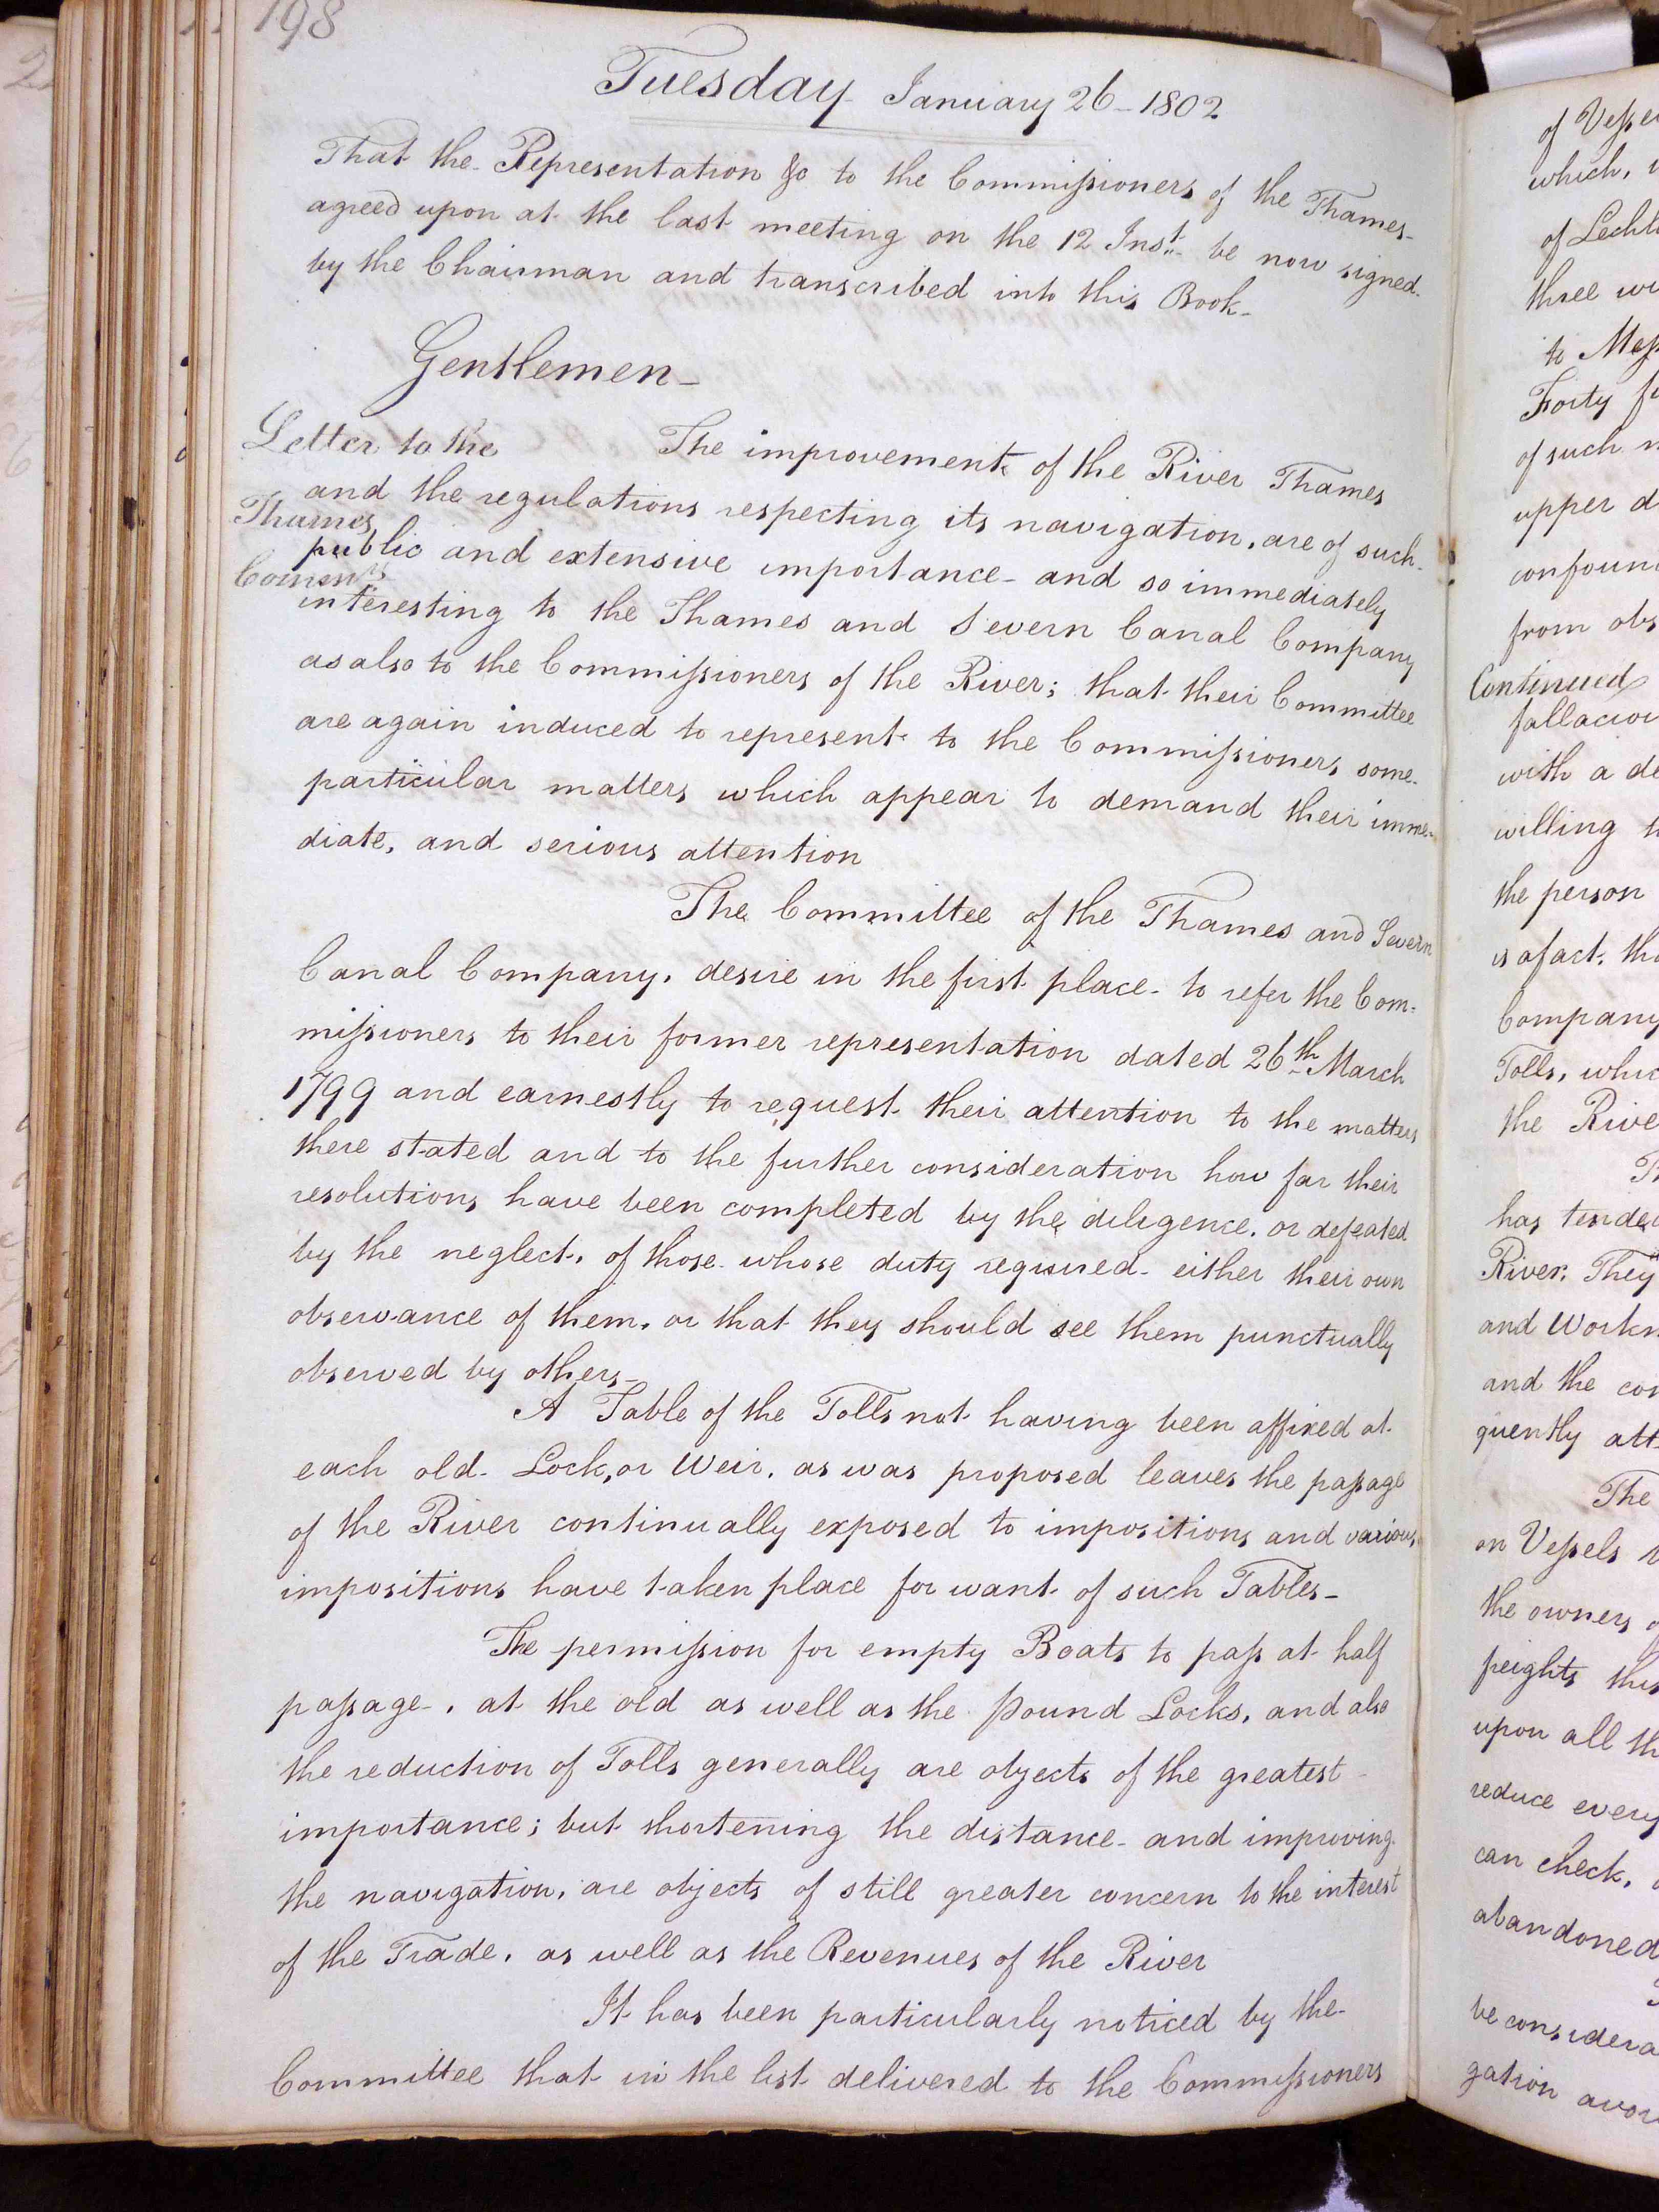 198
Tuesday January 26 - 1802
That the Representation &c to the Commissioners of the Thames
agreed upon at the last meeting on the 12 Inst. be now signed
by the Chairman and transcribed into this Book -
Gentlemen -
Letter to the
Thames
Commrs
The improvements of the River Thames
and the regulations respecting its navigation, are of such
public and extensive importance - and so immediately
interesting to the Thames and Severn Canal Company
as also to the Commissioners of the River; that their Committee
are again induced to represent to the Commissioners some
particular matters which appear to demand their imme-
diate, and serious attention
The Committee of the Thames and Severn
Canal Company, desire in the first place - to refer the Com-
missioners to their former representation dated 26th March
1799 and earnestly to request their attention to the matters
there stated and to the further consideration how far their
resolutions have been completed by the diligence, or defeated
by the neglect, of those whose duty required - either their own
observance of them, or that they should see them punctually
observed by others -
A Table of the Tolls not having been affixed at
each old Lock, or Weir, as was proposed leaves the passage
of the River continually exposed to impositions and various
impositions have taken place for want of such Tables -
The permission for empty Boats to pass at half
passage -, at the old as well as the Pound Locks, and also
the reduction of Tolls generally are objects of the greatest
importance; but shortening the distance - and improving
the navigation, are objects of still greater concern to the interest
of the Trade, as well as the Revenues of the River
It has been particularly noticed by the
Committee that in the list delivered to the Commissioners
of
which,
of
three
to
Forty
of such
upper
from
Continued
with a
willing
the person
is a fact, 
Company
Tolls,
the
has
River. They
and
and the
quently
The
on Vessels
the owners
freights
upon all
reduce every
can check,
abandoned
be
gation